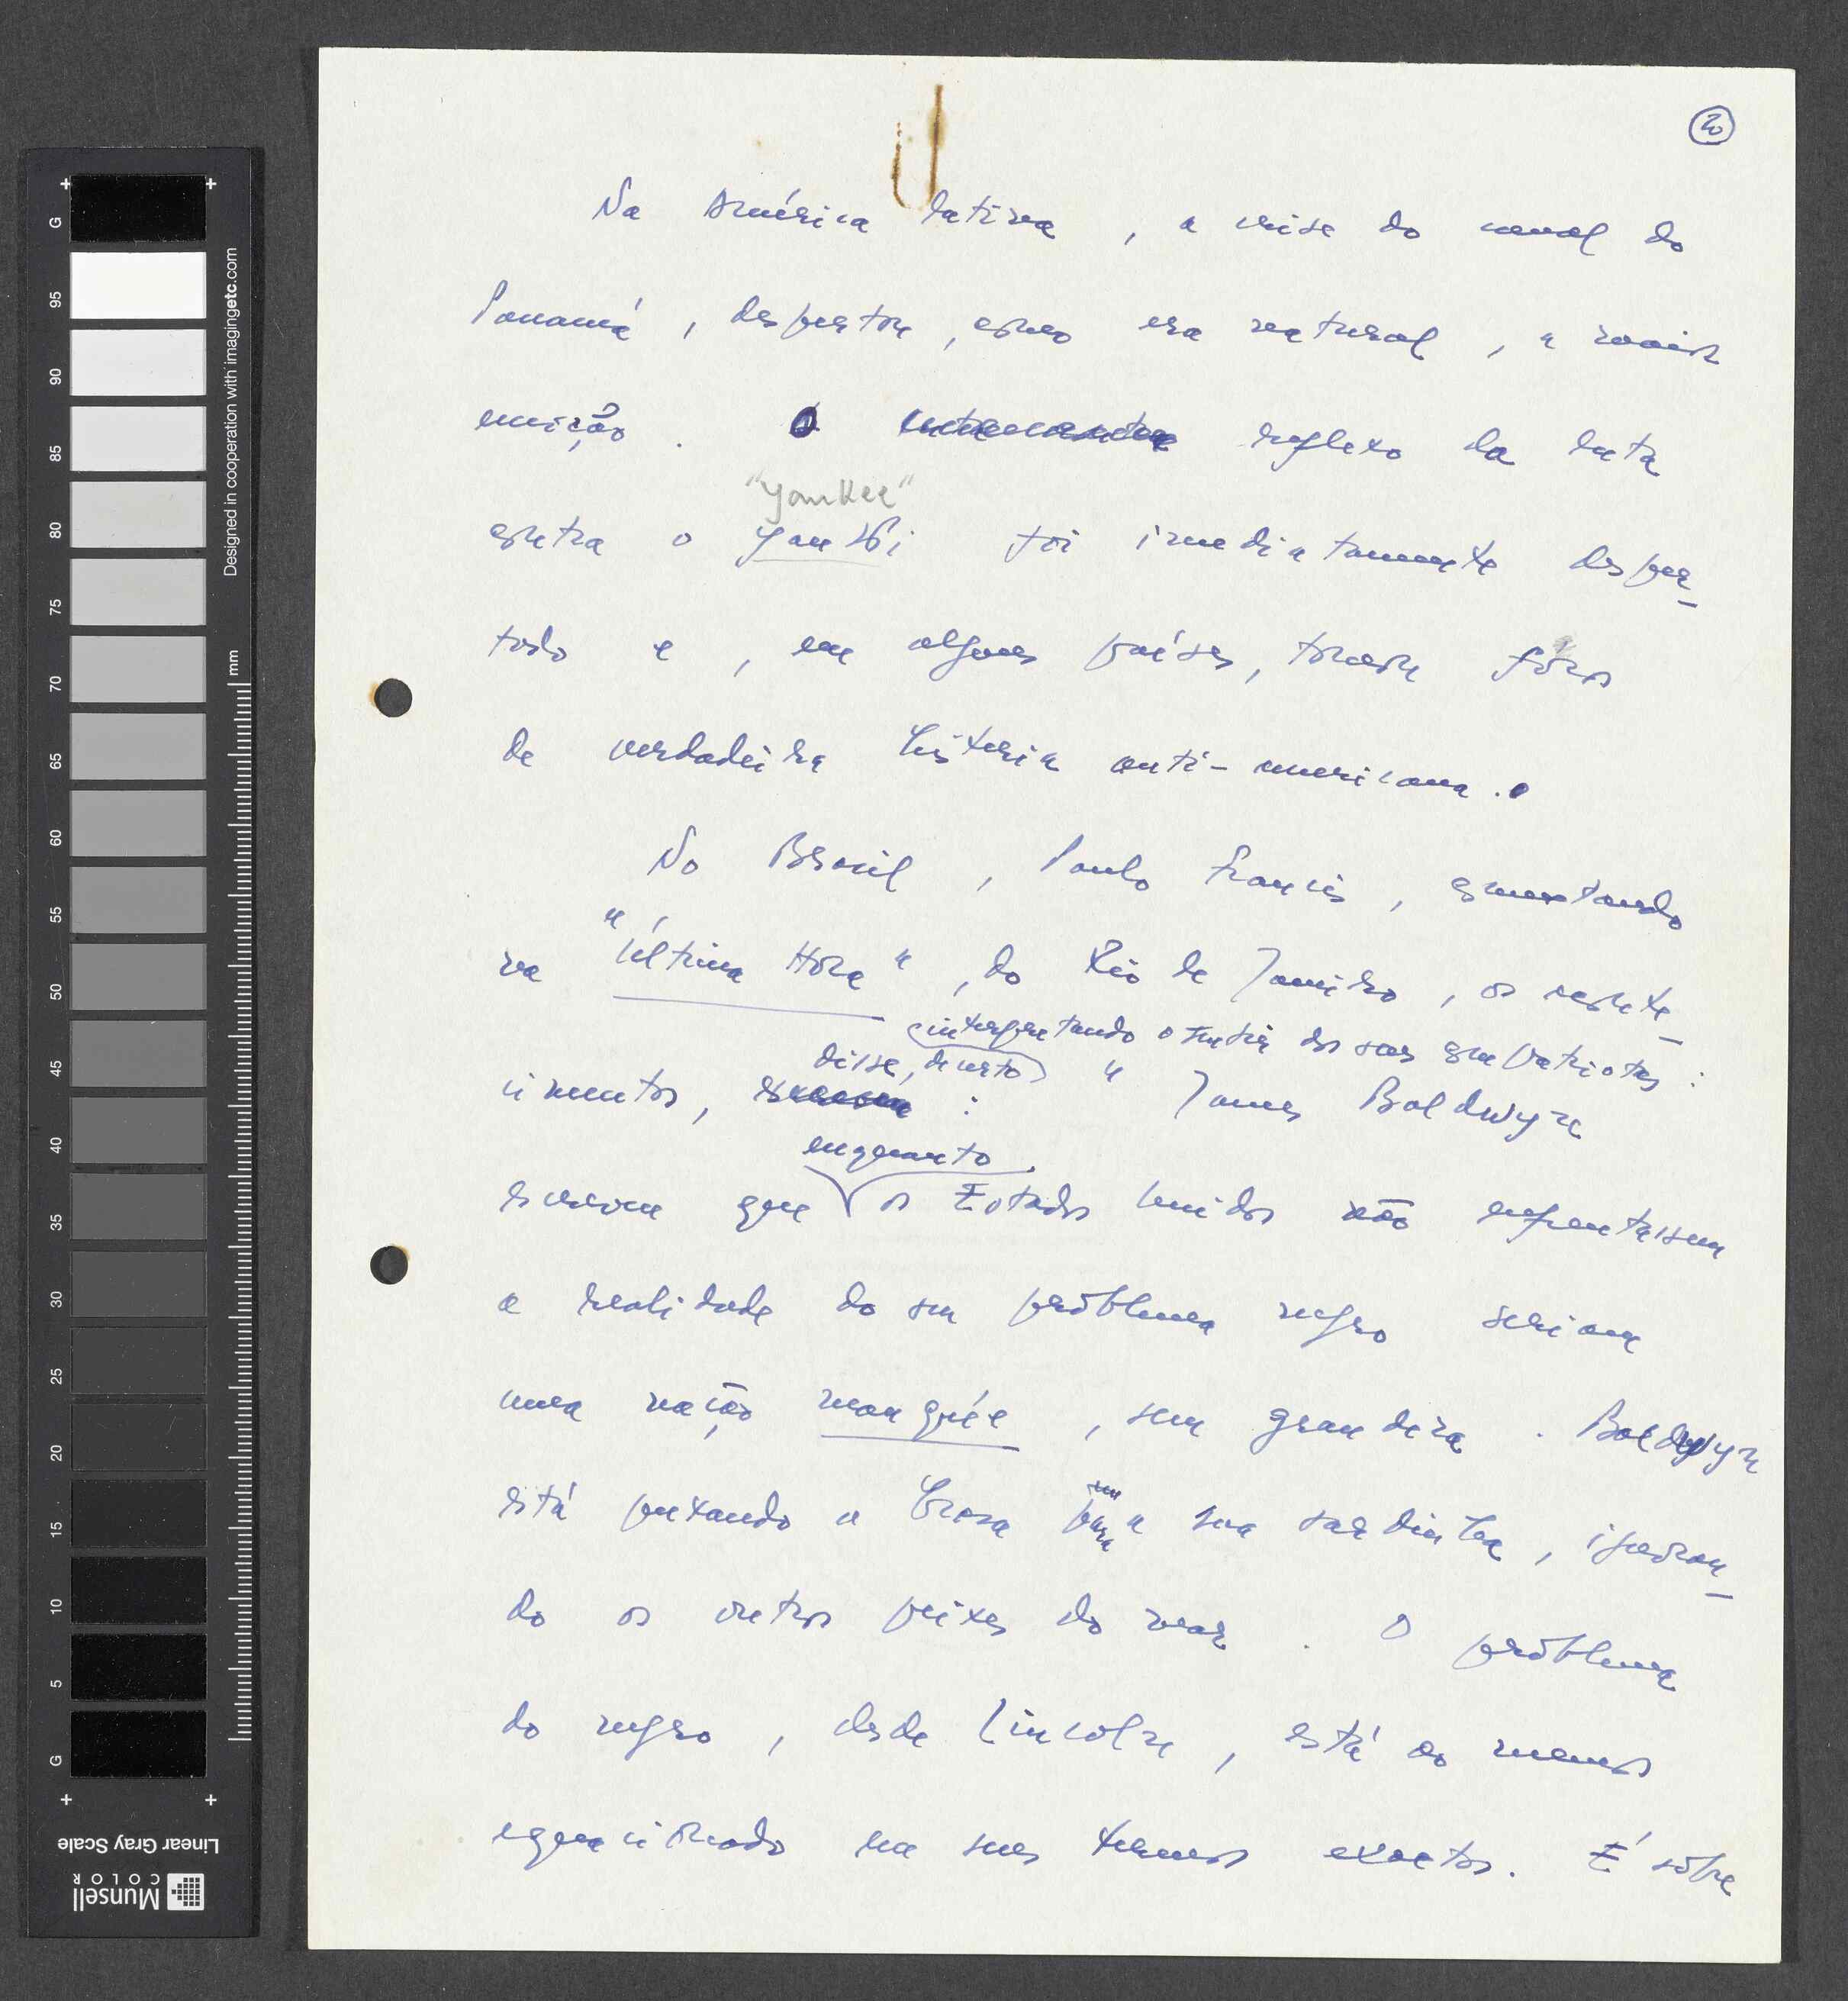 20
Na América Latina, a crise do canal do
Panamá, despertou, como era natural, a maior
emoção. O reflexo da luta
"yankee"
contra o yanki foi imediatamente desper-
tado e, em alguns países, tomou fóros
de verdadeira histeria anti-americana.
No Brasil, Paulo Francis, comentando
na "Última Hora", do Rio de Janeiro, os aconte-
interpretando o sentir dos seus compatriotas:
disse, decerto
cimentos, : "James Baldwyn
enquanto
escreveu que os Estados Unidos não enfrentassem
a realidade do seu problema negro seriam
uma nação manquée, sem grandeza. Baldwyn
está puxando a brasa para a sua sardinha, ignoran-
do os outros peixes do mar. O problema
do negro, desde Lincoln, está ao menos
equacionado em seus termos exactos. É sôbre
G
95
90
85
80
75
70
65
60
55
50
45
40
35
30
25
20
15
10
5
G
mm
Designed in cooperation with imagingetc.com
Linear Gray Scale
Munsell
COLOR